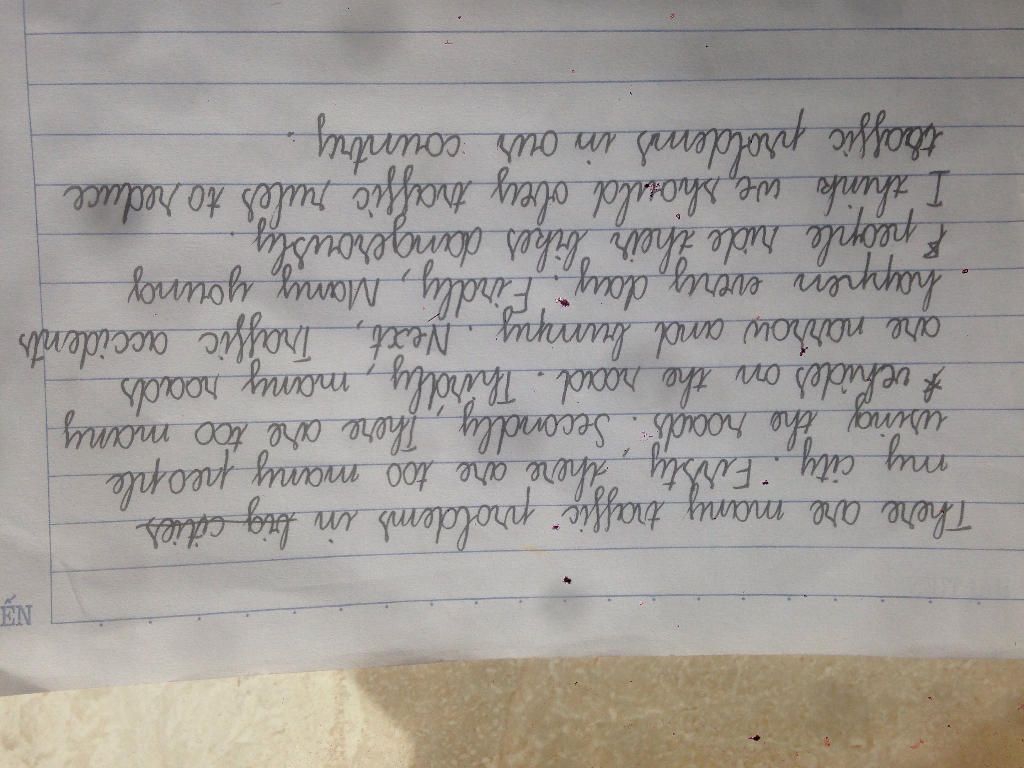 ẾN
There are many traffic problems in big cities
my city. Firsty, there are too many people
using the roads. Secondly, There are too many
vehicles on the road. Thirdly, many roads
are narrow and bumpy. Next, Traffic accidents
happen every day. Firdly, Many young
people ride their bikes dangerously.
I think we should obey traffic rules to reduce
traffic problems in our country.